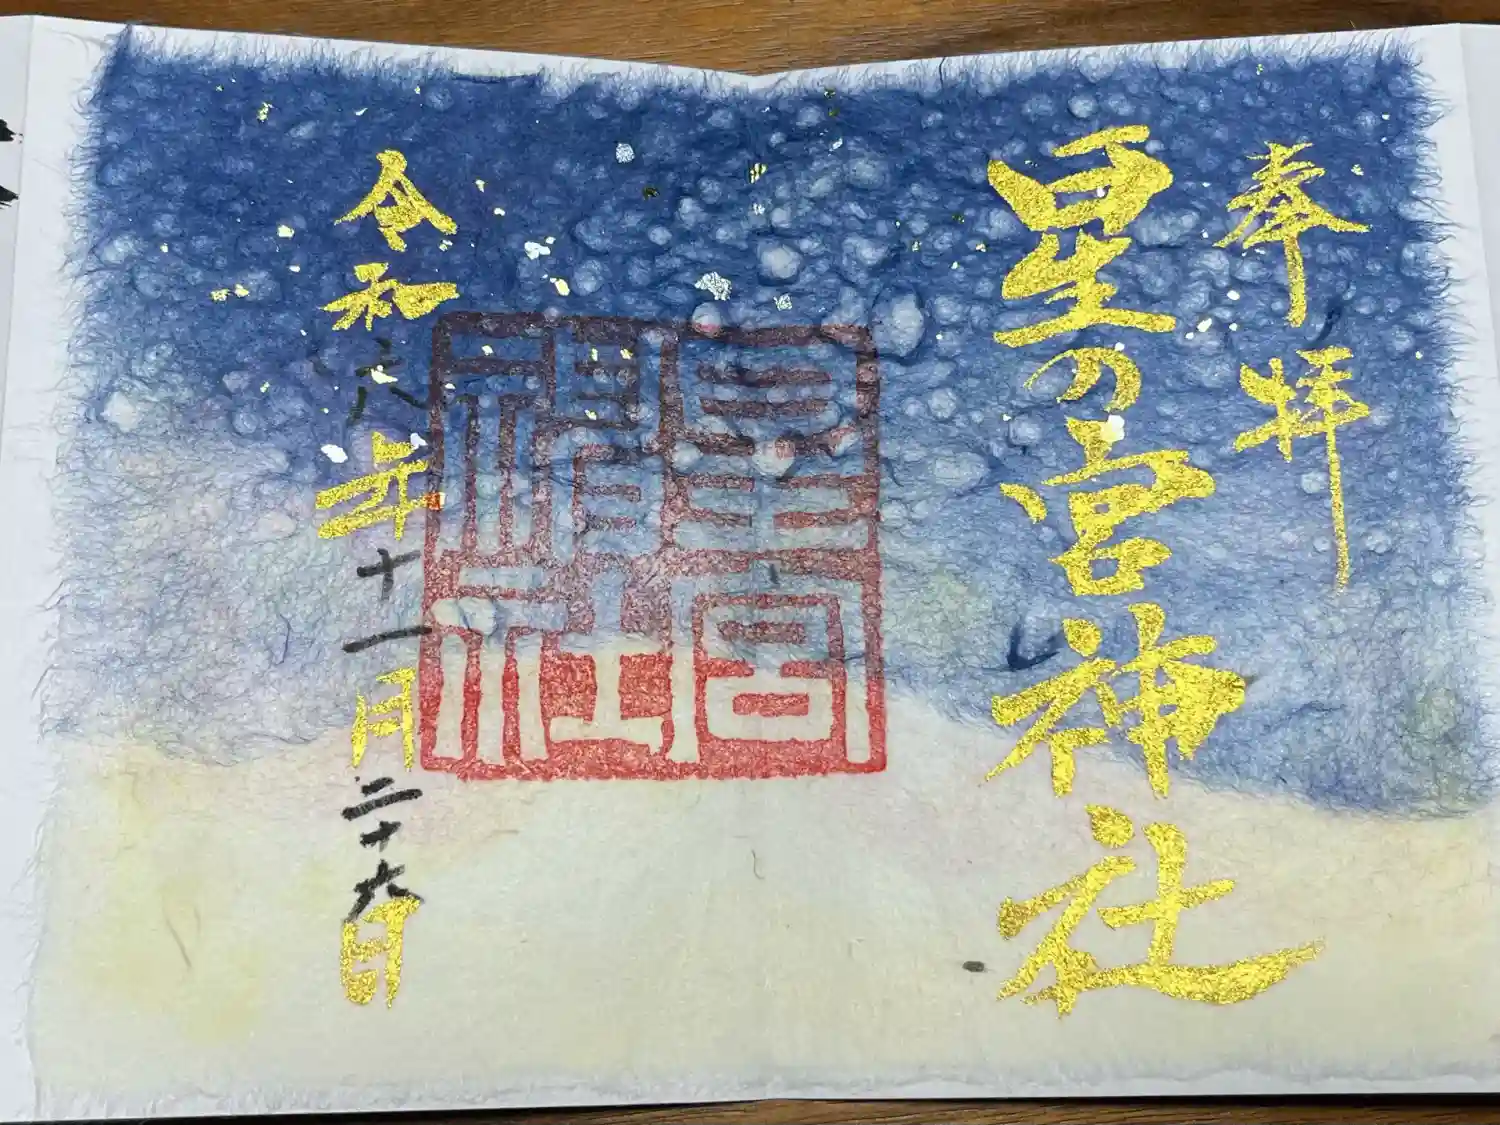 奉拝
星の宮神社
星宮
神社
令和六年十一月二十九日